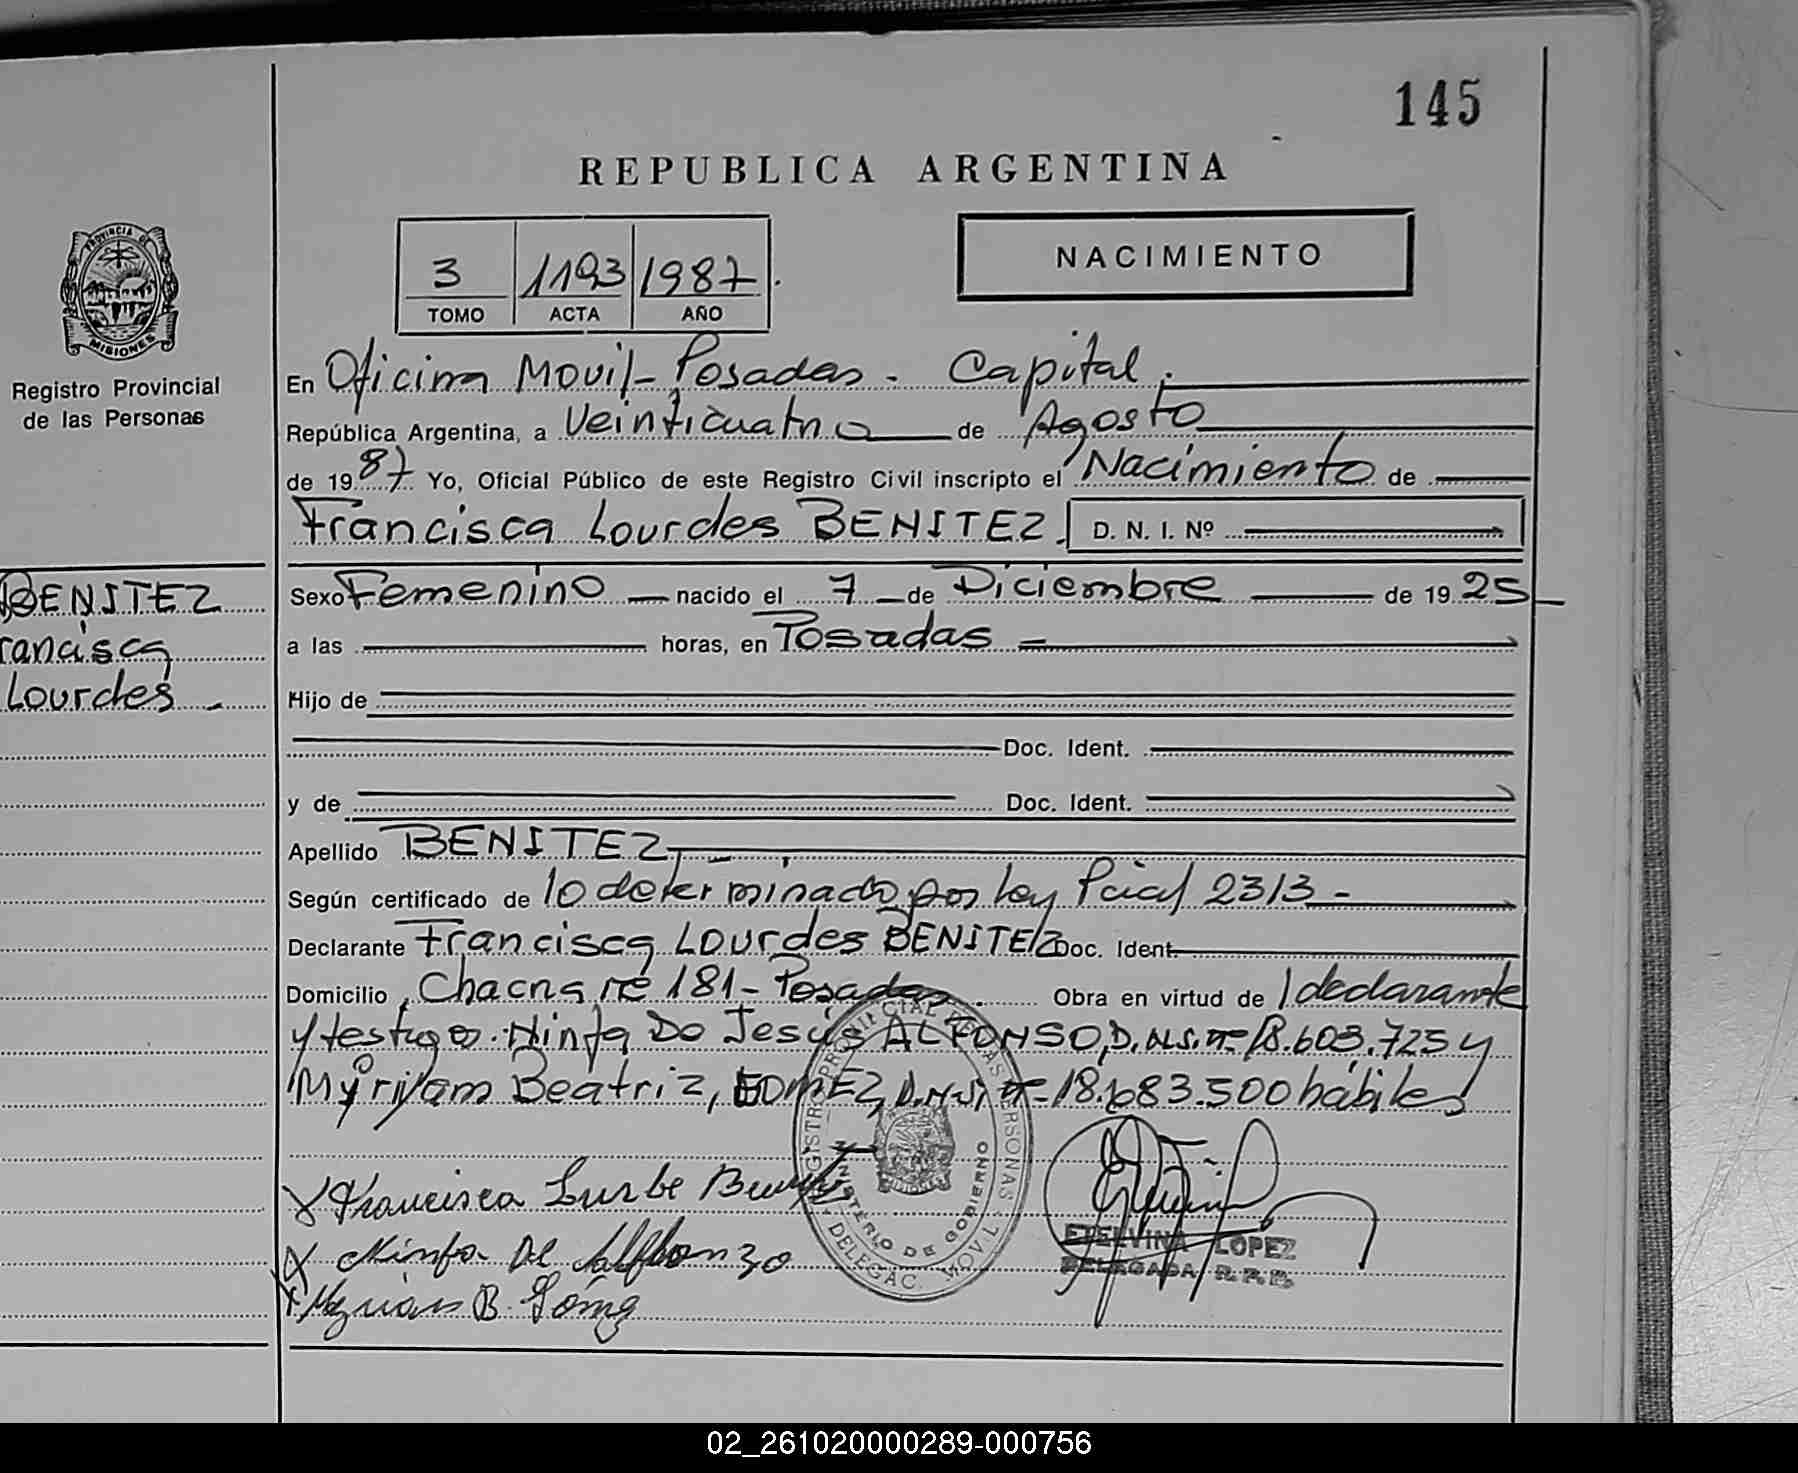 145
REPUBLICA ARGENTINA
PROVINCIA DE
MISIONES
Registro Provincial
de las Personas
3 1193 1987
TOMO ACTA AÑO
NACIMIENTO
En Oficina Movil - Posadas - Capital.
República Argentina, a Veinticuatro de Agosto
de 1987 Yo, Oficial Público de este Registro Civil inscripto el Nacimiento de
Francisca Lourdes BENITEZ. D. N. I. Nº
BENITEZ
rancisca
Lourdes -
Sexo Femenino nacido el 7 de Diciembre de 1925
a las horas, en Posadas
Hijo de
Doc. Ident.
y de Doc. Ident.
Apellido BENITEZ
Según certificado de lo determinado por Ley Pcial 2313 -
Declarante Francisca Lourdes BENITEZ Doc. Ident.
Domicilio Chacra nº 181 - Posadas. Obra en virtud de declarante
y testigos: Ninfa De Jesús ALFONSO, D.N.I. nº 18.603.725 y
Myriam Beatriz, GOMEZ, D.N.I. nº 18.683.500 hábiles
REGISTRO PROVINCIAL DE LAS PERSONAS
MINISTERIO DE GOBIERNO
DELEGAC. MOVIL
Francisca
Ninfa De Alfonzo
B. Gómez
ETELVINA LOPEZ
DELEGADA R.P.P.
02_261020000289-000756